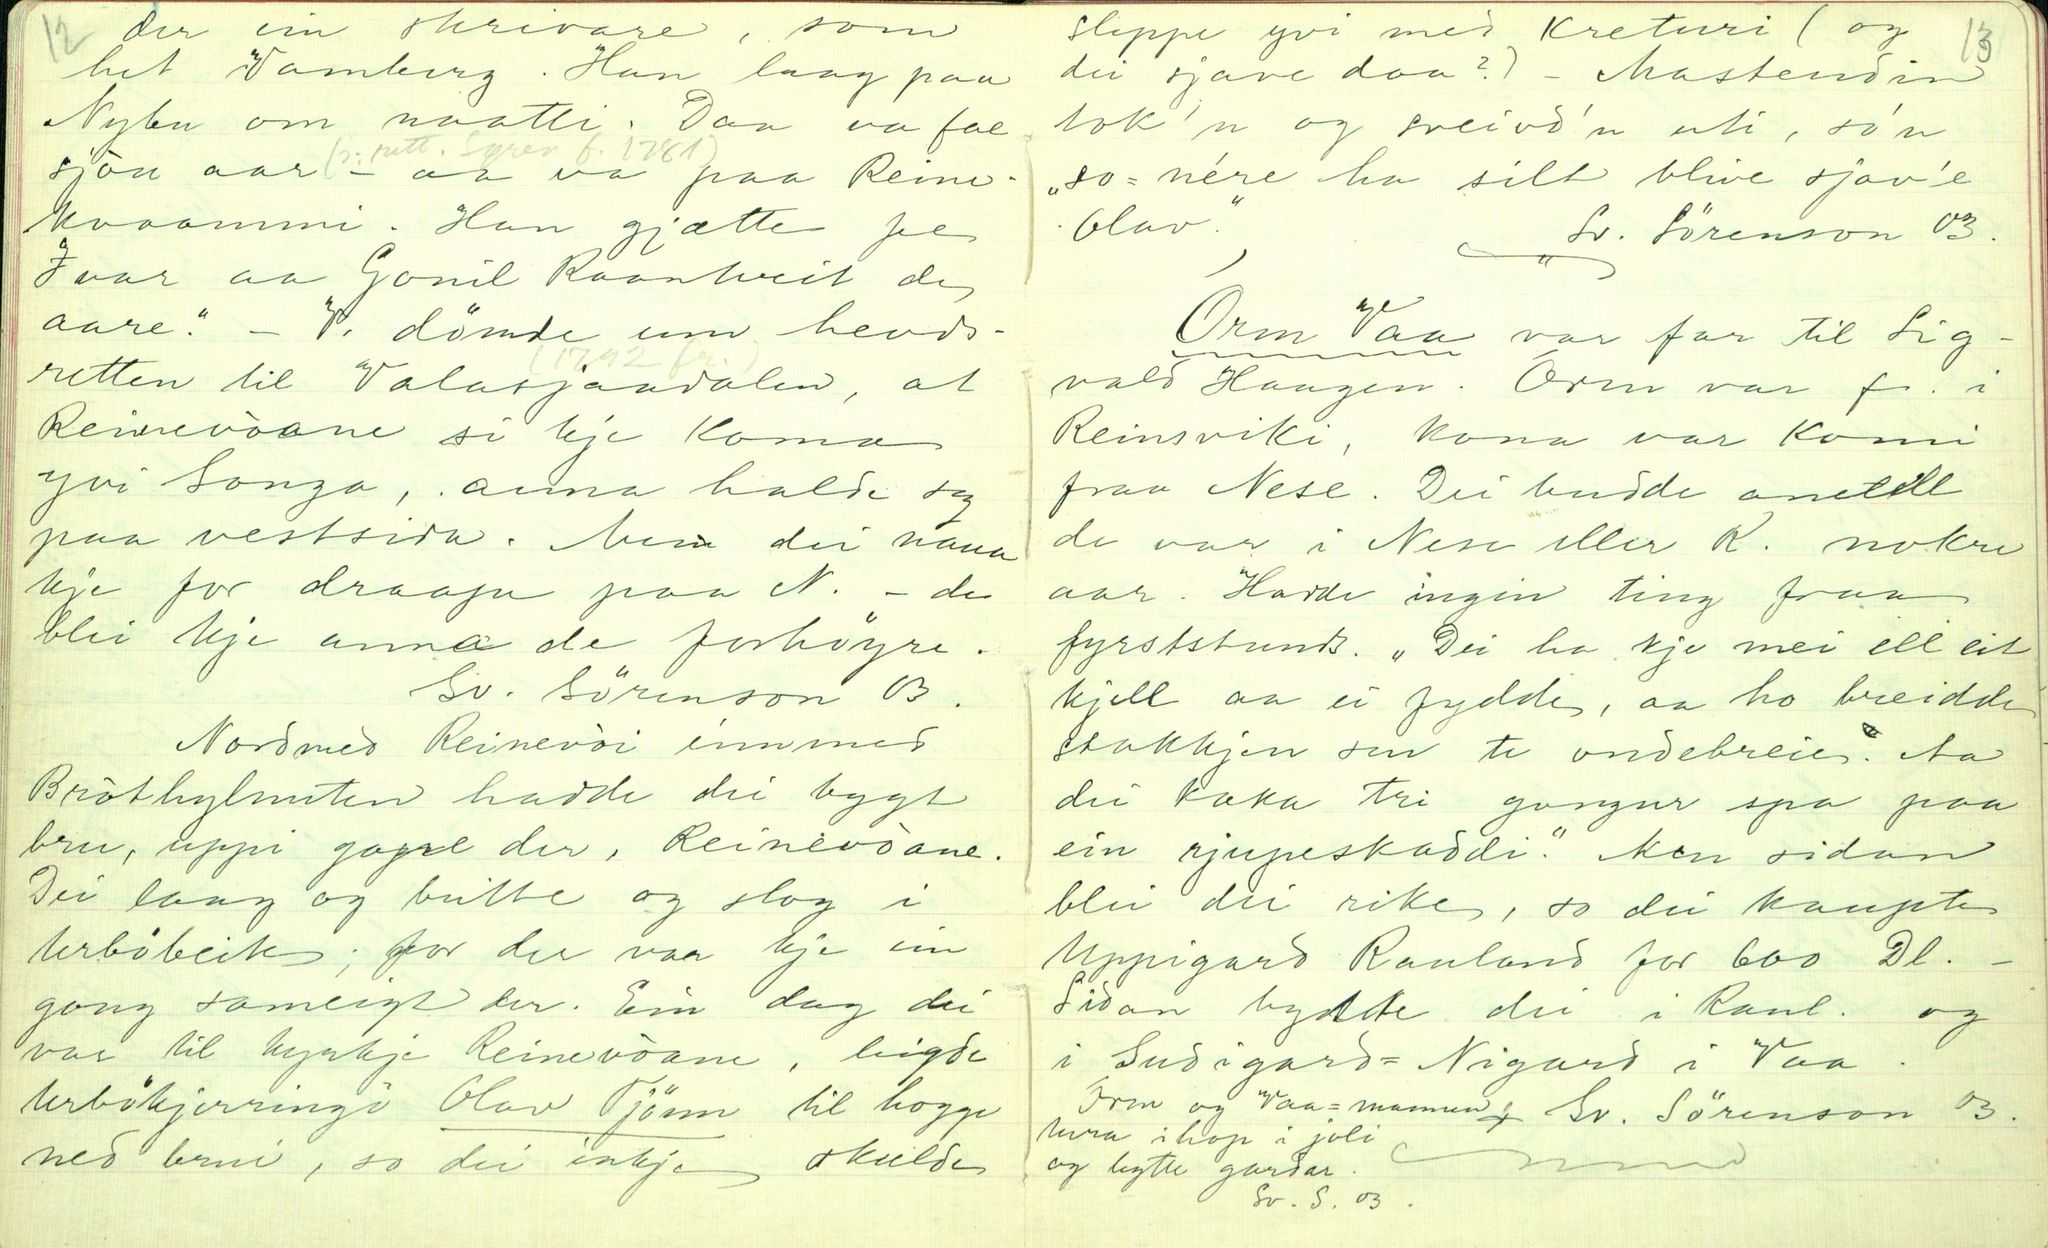 12
der ein skrivare, som
het Wamberg. Han laag paa
Nybu om naatti. Daa va fae
(s: rett. Syren f. 1781)
sjòu aar – aa va paa Reine-
kvaammi. Han gjætte fe
Ivar aa Gonil Raantveit de
aare." – W. dömde um hevds-
(1792 fr.)
retten til Valasjaadalen, at
Reinevòane si kje koma
yvi Songa, anna halde seg
paa vestsida. Men dei
kje for draapu paa N. – de
blei kje anna de forhöyre.
Sv. Sörenson 03.
Nordmed Reinevòi innmed
Bròthylnuten hadde dei bygt
bru, uppi gople der, Reinevòane.
Dei laag og butte og slog i
Urböbeite; for der var kje ein
gong sameigt der. Ein dag dei
var til kyrkje Reinevòane, leigde
Urbökjerringè Olav Tjönn til hogge
ned brui, so dei inkje skulde
13
sleppe yvi med kreturi (og
dei sjave daa?) – Mastendin
tok'n og sveivd'n uti, só'n
"so=nére ha silt blive sjav'e
Olav."
Sv. Sörenson 03.
Orm Vaa var far til Sig-
vald Haugen. Orm var fr. i
Reinsviki, kona var komi
fraa Nese. Dei budde anetell
de var i Nese eller R. nokre
aar. Hadde ingin ting fraa
fyrststunds. "Dei ha kje mei ell eit
kjell aa ei fydde, aa ho breidde
stakkjen sin te ondebreie. Aa
dei kaka tri gongur spa paa
ein rjupeskaddi." Men sidan
blei dei rike, so dei kaupte
Uppigard Rauland for 600 Dl. –
Sidan bytte dei i Raul. og
i Sudigard=Nigard i Vaa.
Orm og Vaa=mannen Sv. Sörenson 03.
tura ihop i joli
og bytte gardar.
Sv. S. 03.